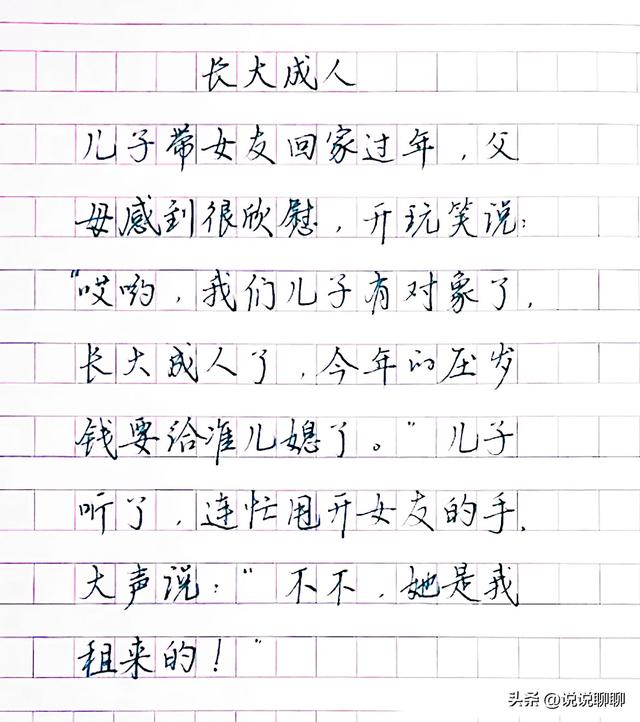 长大成人
儿子带女友回家过年，父
母感到很欣慰，开玩笑说：
“哎哟，我们儿子有对象了，
长大成人了，今年的压岁
钱要给准儿媳了。”儿子
听了，连忙甩开女友的手，
大声说：“不不，她是我
租来的！”
头条 @说说聊聊